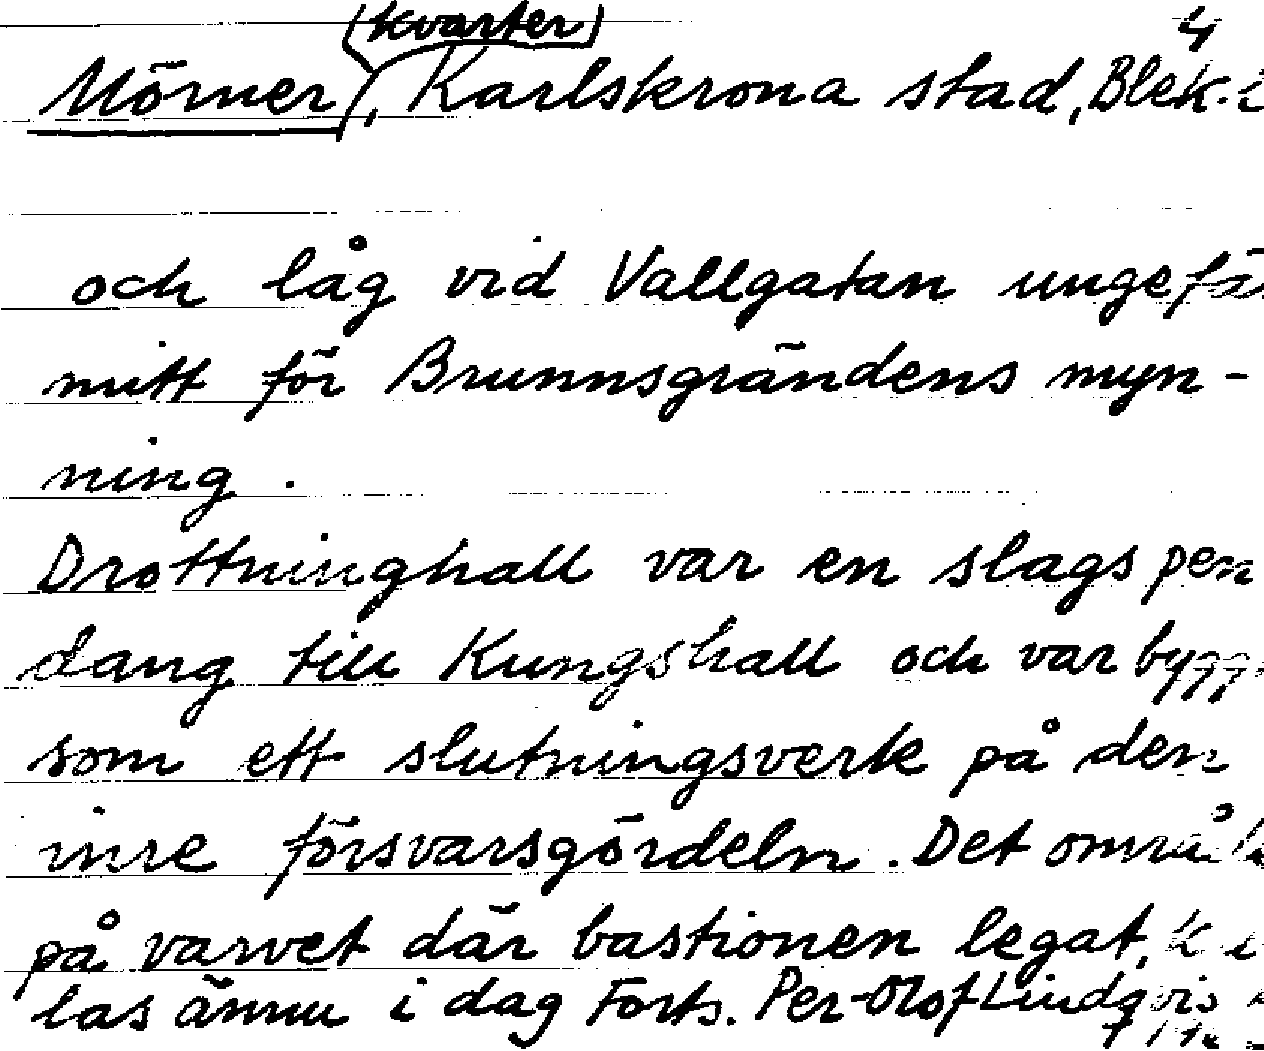 (kvarter) 4
Mörner, Karlskrona stad, Blek.
och låg vid Vallgatan ungefä
mitt för Brunnsgrändens myn-
ning.
Drottninghall var en slags pen
dang till Kungshall och var bygg
som ett slutningsverk på den
inre försvarsgördeln. Det områ
på varvet där bastionen legat,
las ännu i dag Forts. Per-Olof Lindqvis